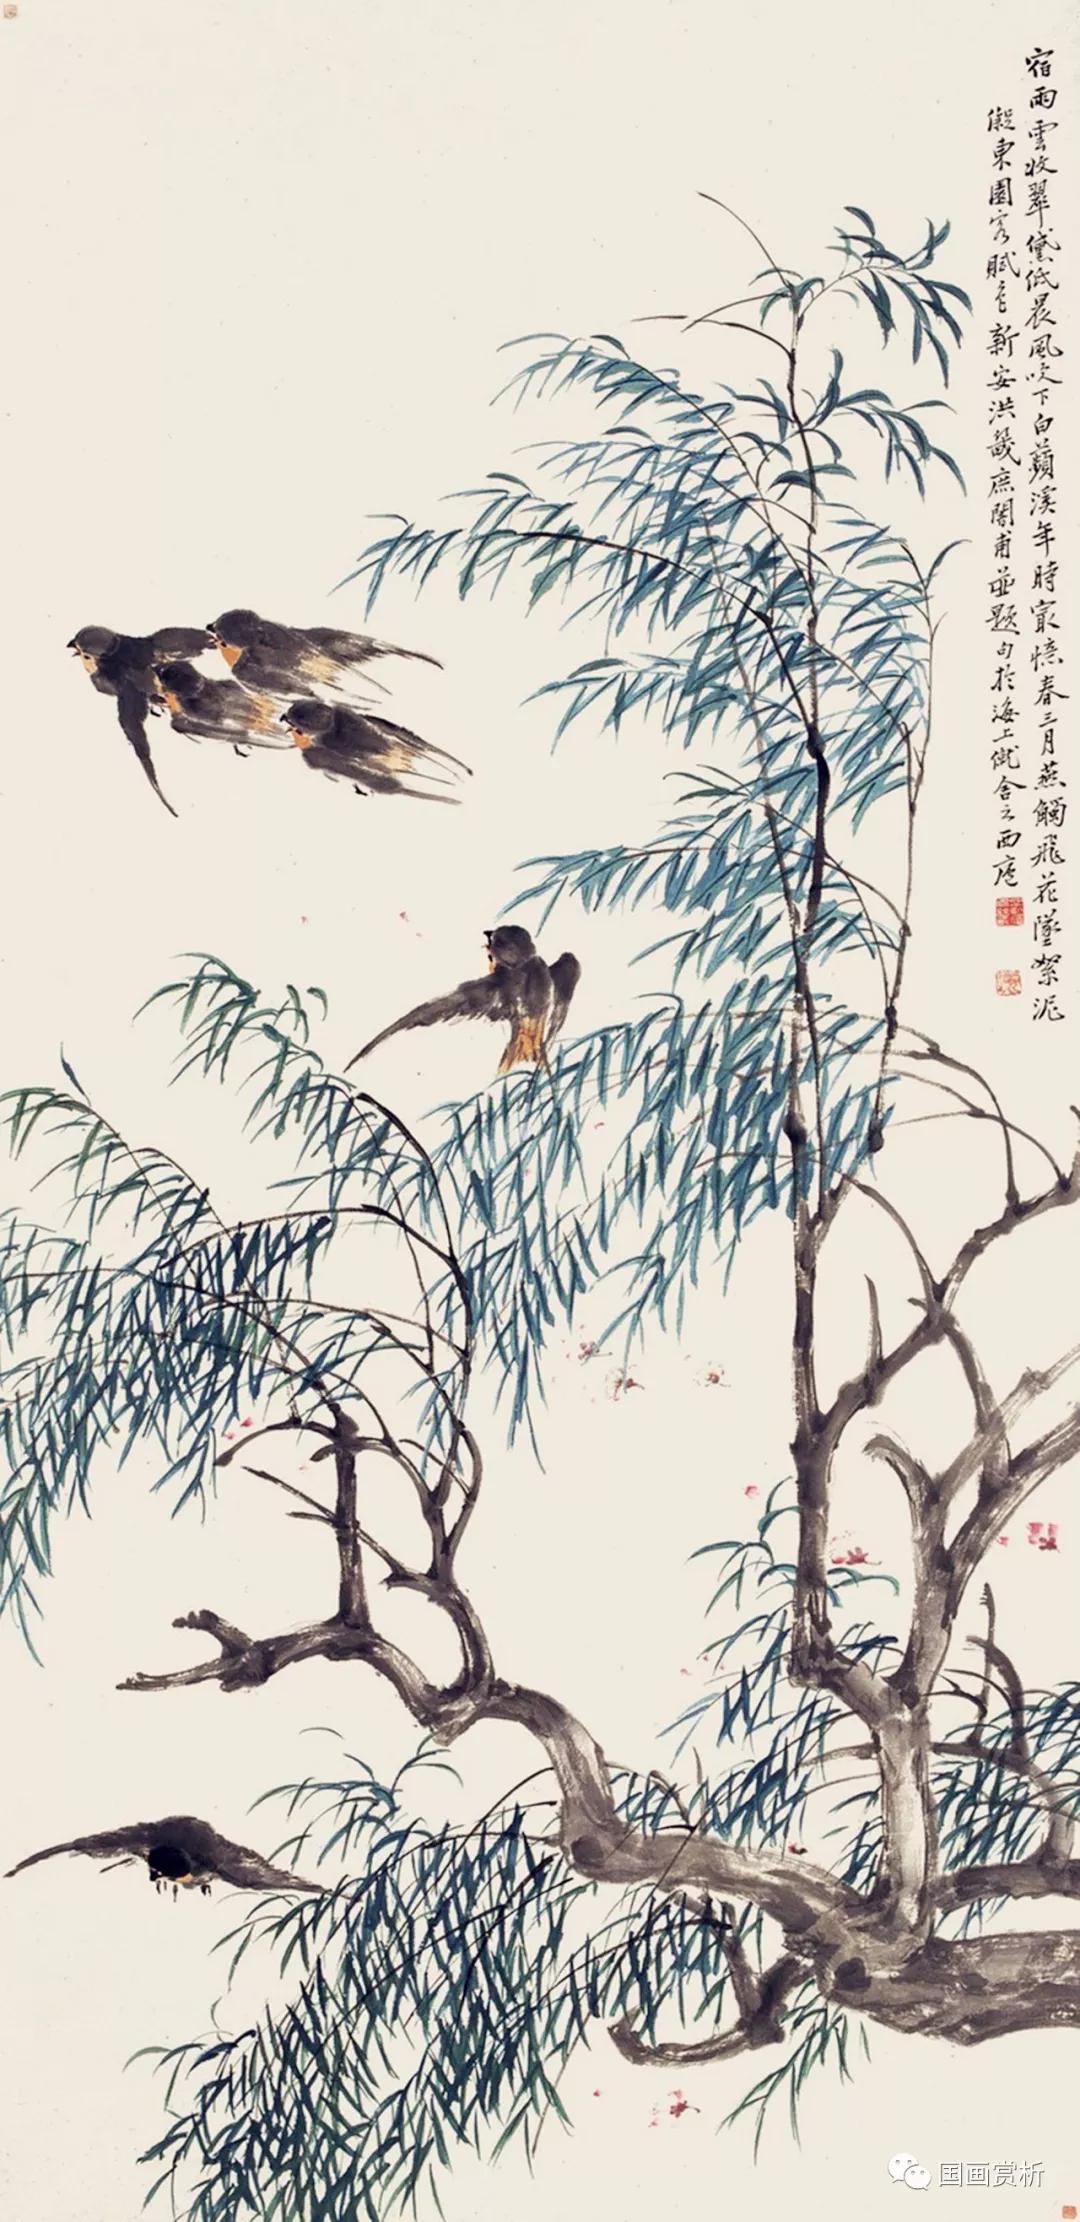 宿雨雲收翠黛低晨風吹下白蘋溪年時最憶春三月燕觸飛花墜絮泥
擬東園客賦色新安洪畿庶闇甫並題句於海上僦舍之西廑
国画赏析